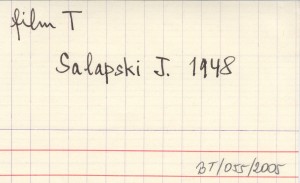 film T
Sałapski J. 1948
BT/055/2005